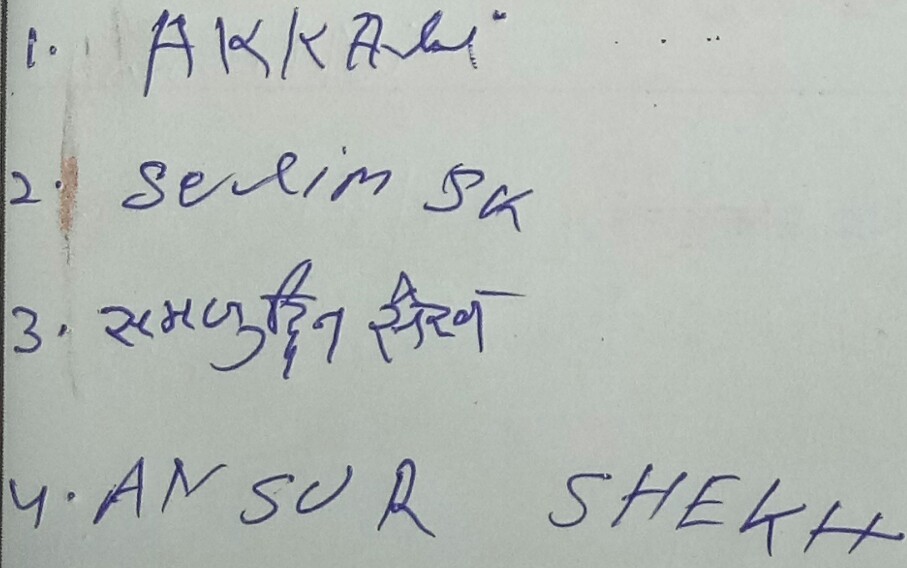 1. AKKAlui
2. Selim SK
3. समजुद्दिन सेख
4. ANSUR SHEKH